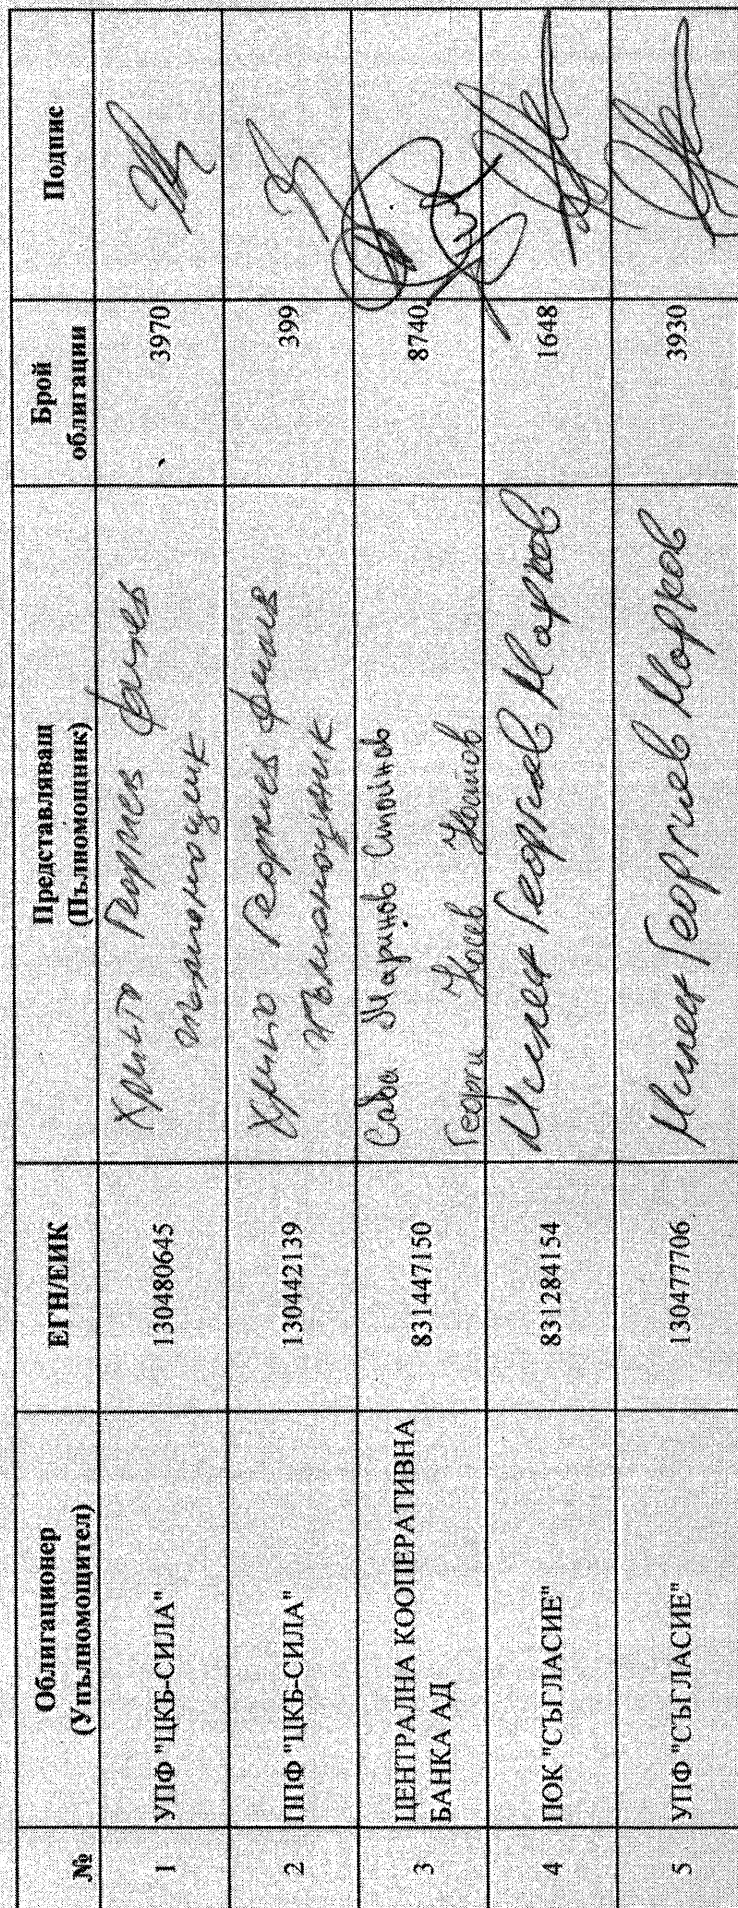 № Облигационер (Упълномощител) ЕГН/ЕИК Представляващ (Пълномощник) Брой облигации Подпис
1 УПФ "ЦКБ-СИЛА" 130480645 Христо Георгиев 3970
пълномощник
2 ППФ "ЦКБ-СИЛА" 130442139 Христо Георгиев 399
пълномощник
3 ЦЕНТРАЛНА КООПЕРАТИВНА 831447150 Сава Маринов Стойнов 8740
БАНКА АД Георги Косев Костов
4 ПОК "СЪГЛАСИЕ" 831284154 Милен Георгиев Марков 1648
5 УПФ "СЪГЛАСИЕ" 130477706 Милен Георгиев Марков 3930